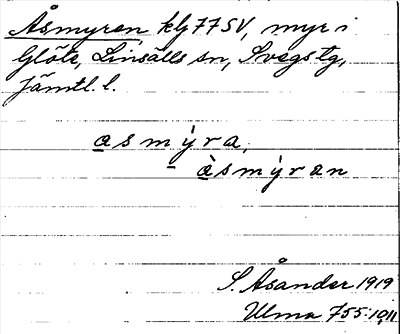 Åsmyren, klj 77 SV, myr i
Glöte, Linsälls sn, Svegs tg,
Jämtl. l.
asmýra,
- àsmýran
S. Åsander 1919
Ulma 755:10,11